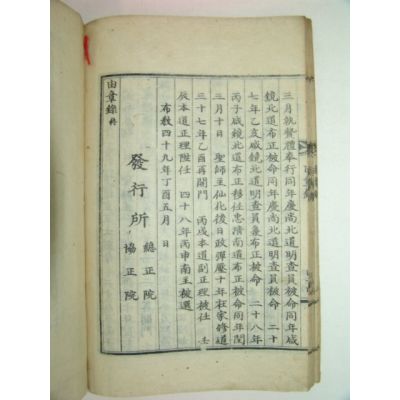 三月執聲體奉行同年慶尙北道明查員被命同年咸
鏡北道布正被命同年慶尙北道明查員被命 二十
七年乙亥咸鏡北道明查員兼布正被命 二十八年
丙子咸鏡北道布正移任忠淸南道布正被命同年閏
三月十日 聖師主仙化後日政彈壓十年在家修道
三十七年乙酉再開門 丙戌本道副正理被任 壬
辰本道正理陞任 四十八年丙申南主被選
布敎四十九年丁酉五月 日
發行所 總正院
協正院
由章錄終